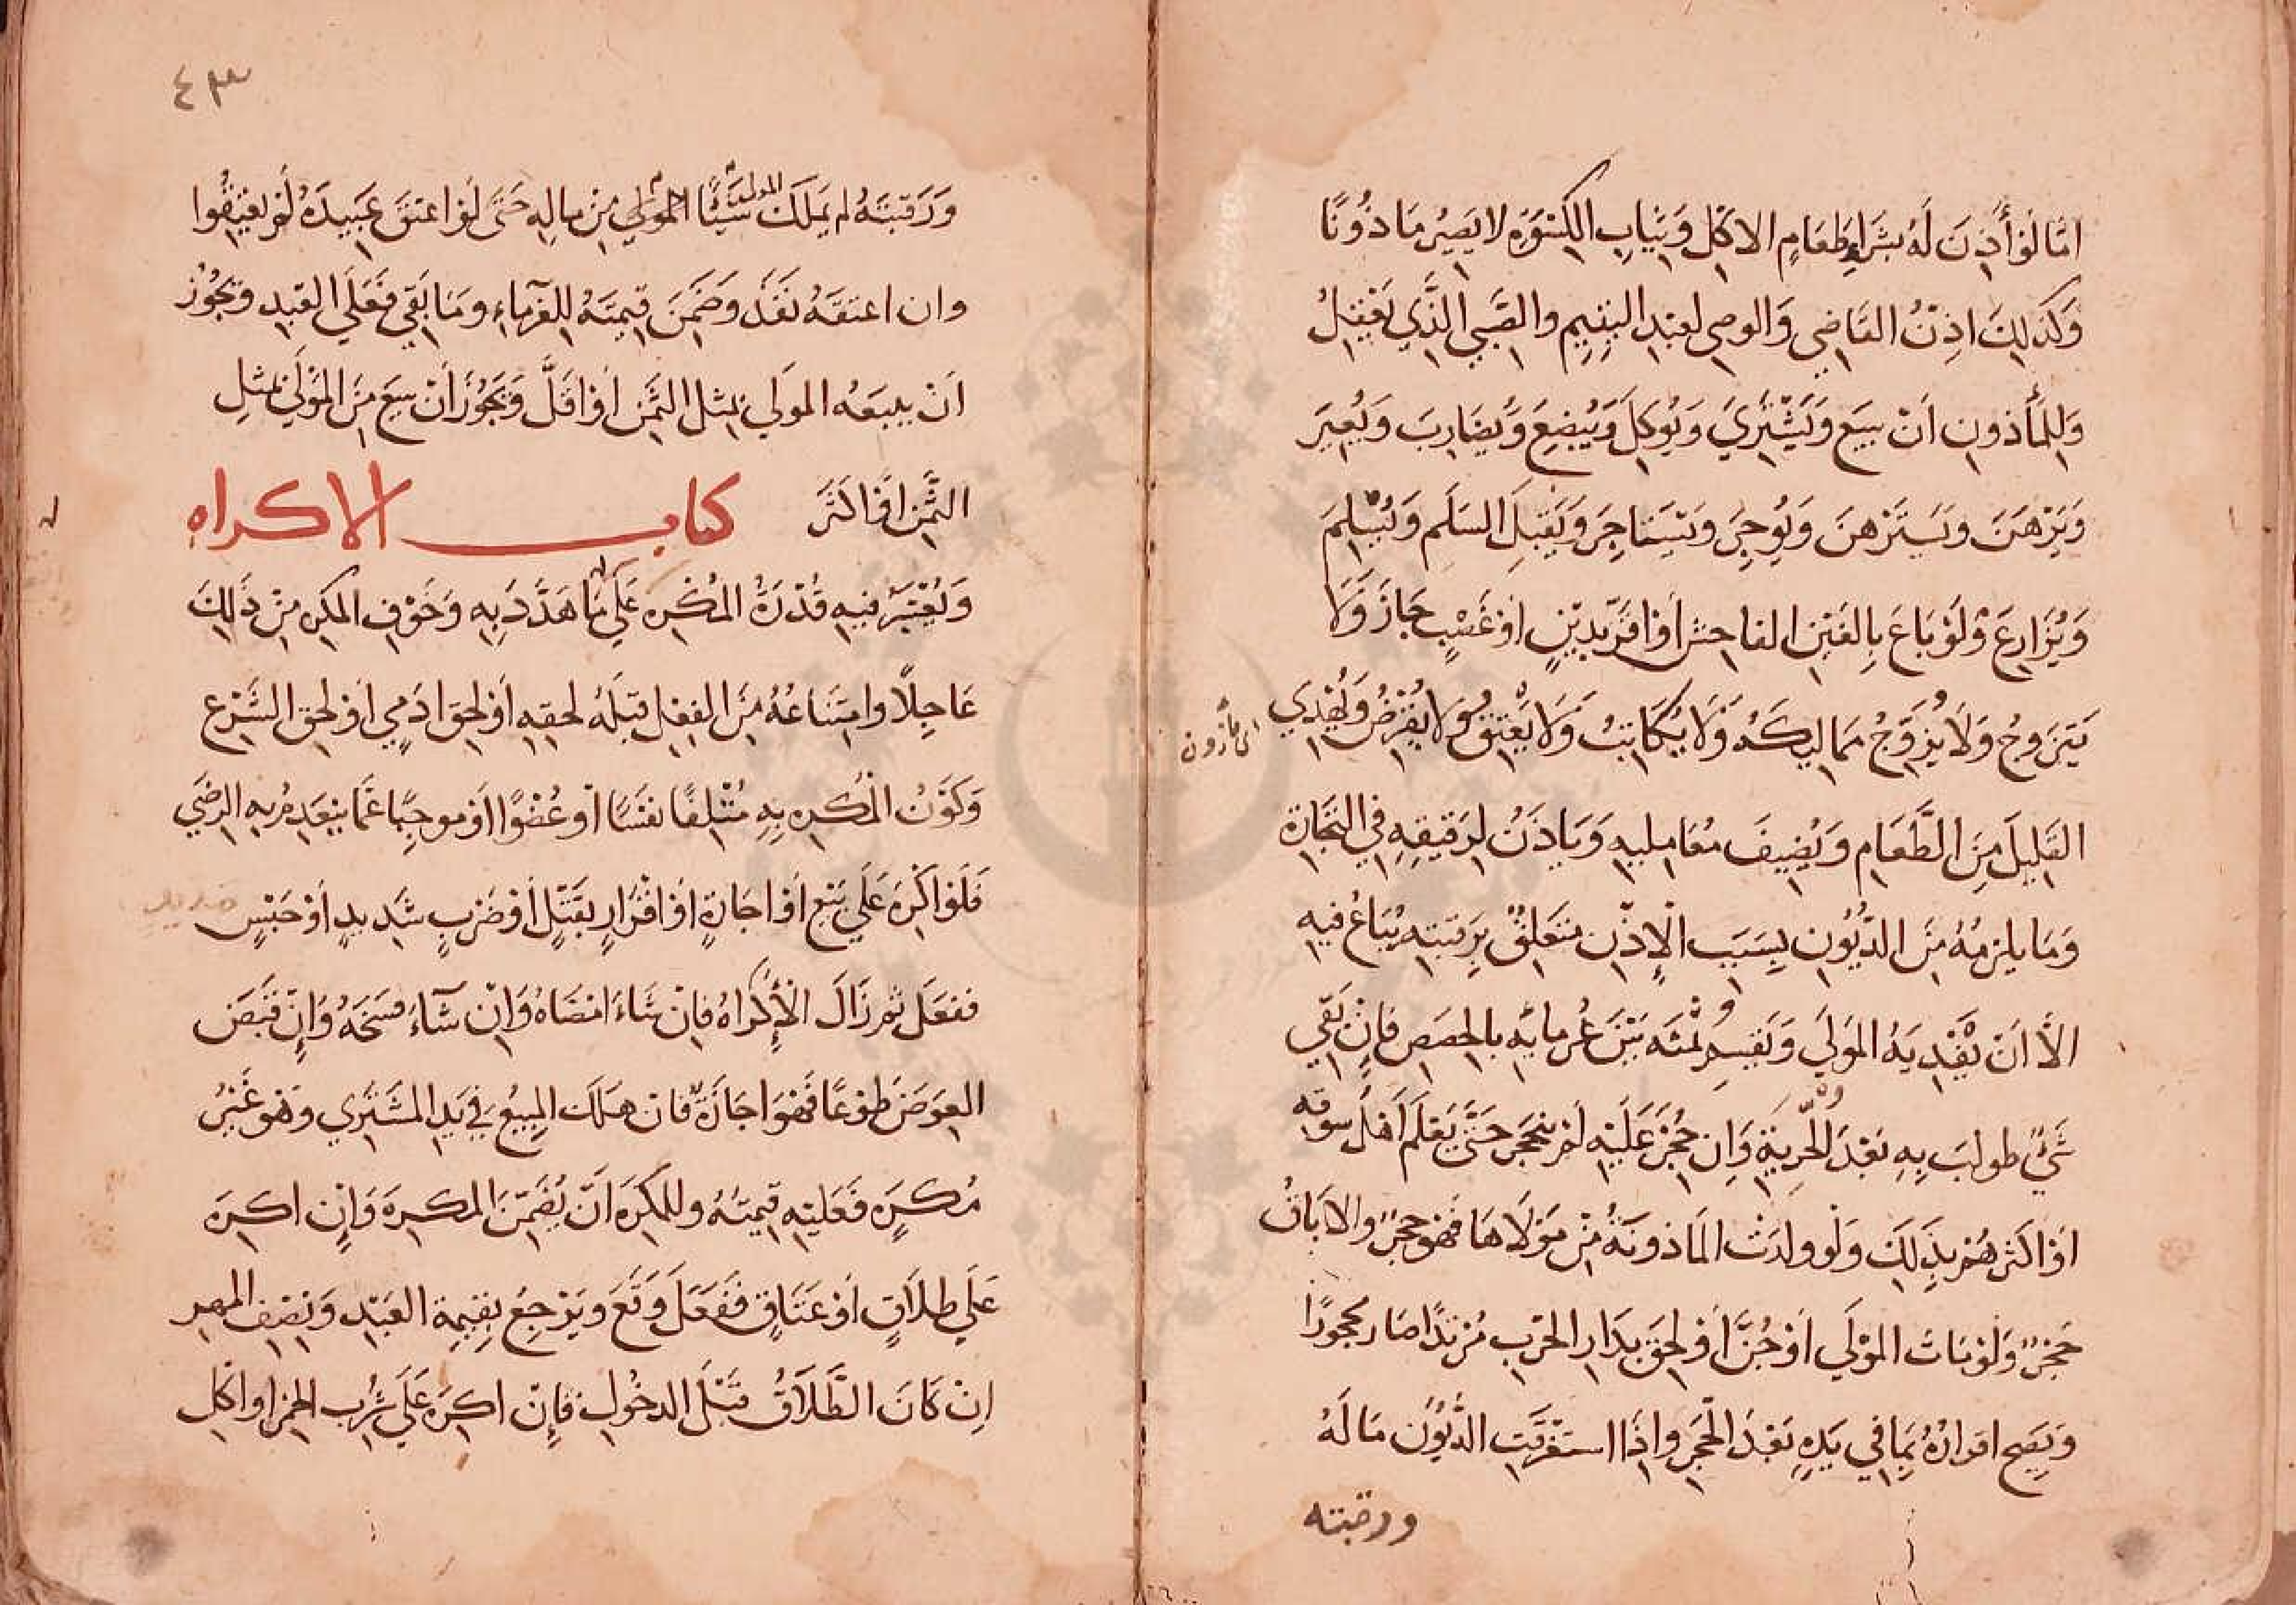 امّا لَوْ أَذِنَ لَهُ بشَراءِ طَعَامِ الاكْلِ وَثِيَابِ الكِسْوَةِ لا يَصِيْرُ مَاذُونًا
وَكَذلِكَ اذِنْتُ القَاضِي وَالوصِي لعَبْدِ اليَتِيمِ والصَّبِي الذَّي يَعْقِلُ
وَلِلمأْذونِ اَنْ يبيَع وَيَشْتَرِيَ وَيُوكِلَ وَيُبْضِعَ وَيُضَارِبَ وَيُعِيَر
وَيَرْهَنَ ويَسَترْهنَ وَيُوجِرَ ويَسْتَاجِرَ وَيَقْبَلَ السَلَم وَيُسْلِمَ
وَيُزَارِعَ وَلَوْ بَاعَ بِالغَبْنِ الفاحِشِ اَوْ اقَرّ بِدَيْنٍ اَوْ غَصْبٍ جَازَ وَلَا
يَتَزوجُ وَلَا يُزَوِّجُ مَمَاليكَهُ وَلَا يُكَاتِبُ وَلَا يُعْتِقُ وَلا يُقْرِضُ وَيُهْدِي
اى مأذون
القَليلَ مِنَ الطَّعَامِ وَيُضِيفَ مُعَامِليهِ وَيَاذَنُ لرَقيقِهِ في التِّجَارة
وَمَا يلزمُهُ مِنَ الدُّيُونِ بِسَبَب الْإِذْنِ متَعَلِقٌ بِرَقبَتِهِ يُبَاعُ فيهِ
الاَّ اَنْ يَفْدِيَهُ المَولَي وَيَقْسِمُ ثمْنَه بَيْنَ غُرمائهِ بالحِصَصِ فاِنْ بَقّي
شَيْئٌ طولِبَ بِهِ بَعْدَ الْحُرِيّةِ وَاِن حُجِرَ عَلَيْهِ لَمْ ينحَجِرْ حَتَّى يَعْلَمَ اَهْلُ سوقِهِ
اَوْ اكثَرهُمْ بذَلِكَ وَلَو ولدَتْ المَاذونَةُ مِنْ مَوْلَاهَا فَهو حجرٌ والاَبَاقُ
حَجْرٌ وَلَوْ مَاتَ المَوْلَي اَوْ جُنَّ اَوْ لحِقَ بدَارِ الحَرْبِ مُرْتدًّا صَارَ محجورًا
وَيَصِح اقرارُهُ بِمَا في يَدِهِ بَعْدَ الْحَجَرِ واِذَا استغرَقتِ الدُّيُون مَالَهُ
ورقبته
٤٣
وَرَقبَتَهُ لم يَملَكَ شَيْئًا المَولي مِنْ مالِهِ حَتَى لَوْ اعتقَ عَبيدَهُ لَمْ يعْتِقُوا
وان اعتقَهُ نَفَذَ وَضَمِنَ قِيمَتَهُ لِلغرَماءِ ومَا بَقي فَعَلَي العَبْدِ وَيجُوْز
اَنْ يبيعَه المولَي بمثل الثَمَنِ اَوْ اقَلَّ وَيَجُوْزُ اَنْ يبيعَ مِنَ المَوْلَي بمثلِ
الثَّمنِ اَوْ اكثَرَ كتاب الاكراه
وَيُعْتَبرُ فيهِ قُدْرَةُ المُكْرِهِ عَلَي مَا هَدَّدَ بِهِ وَخَوْفِ المكرهِ مِنْ ذَلِكَ
عَاجِلًا وامْتنَاعُهُ مِنَ الفعْلِ قبْلَهُ لحقِهِ اَوْ لحِقِ ادَمي اَوْ لحق الشَرْعِ
وَكَوْنُ الْمُكْرِهِ بِهِ مُتْلِفًا نفسًا اَوْ عُضْوًا اَوْ موجبًا غمًّا ينعَدِمُ بِهِ الرضَي
فَلَوْ اكْرَهَ عَلَي بَيْعٍ اَوْ اجَارةٍ اَوْ اقْرَارٍ بقَتْلٍ أَوْ ضَرْبٍ شَديدٍ اَوْ حَبْسٍ
ففعَلَ ثم زَالَ الْإِكْرَاهُ فاِنْ شَاءَ امضَاهُ وَاِنْ شَآءَ فسَخَهُ وَاِنْ قَبَضَ
العِوَضَ طَوْعًا فَهْوَ اجَازَةٌ فان هَلَكَ المبِيعُ في يَدِ المُشْتَرِي وَهْوَ غَيْرُ
مُكرَهٍ فَعَليْهِ قيمَتَهُ وللمُكْرَهَ اَنْ يُضَمِّنَ المكرِهَ وَاِنْ اكرِهَ
عَلَي طلَاقٍ اَوْ عَتَاقٍ فَفَعَلَ وَقَعَ وَيَرْجِعُ بِقيمَةِ العَبْدِ وَبنِصْفِ المهرِ
اِنْ كَانَ الطَّلَاَقُ قَبْلَ الدخُولِ فاِنْ اكرِهَ عَلَي شُرْبِ الخمرِ او اكْلِ